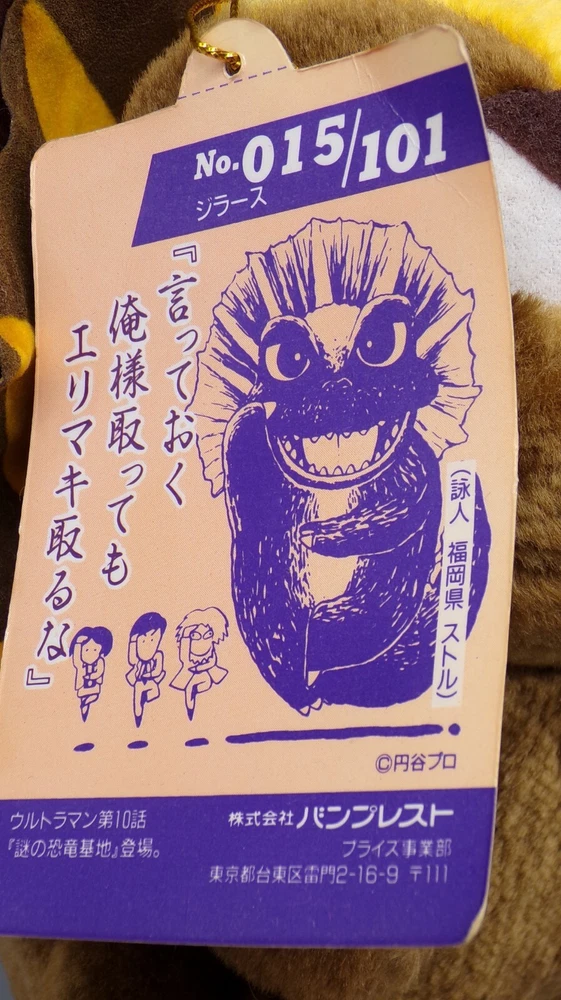 No.015/101
ジラース
『言っておく
俺様取っても
エリマキ取るな』
(詠人 福岡県 ストル)
©円谷プロ
ウルトラマン第10話
『謎の恐竜基地』登場。
株式会社 バンプレスト
プライズ事業部
東京都台東区雷門2-16-9 〒111